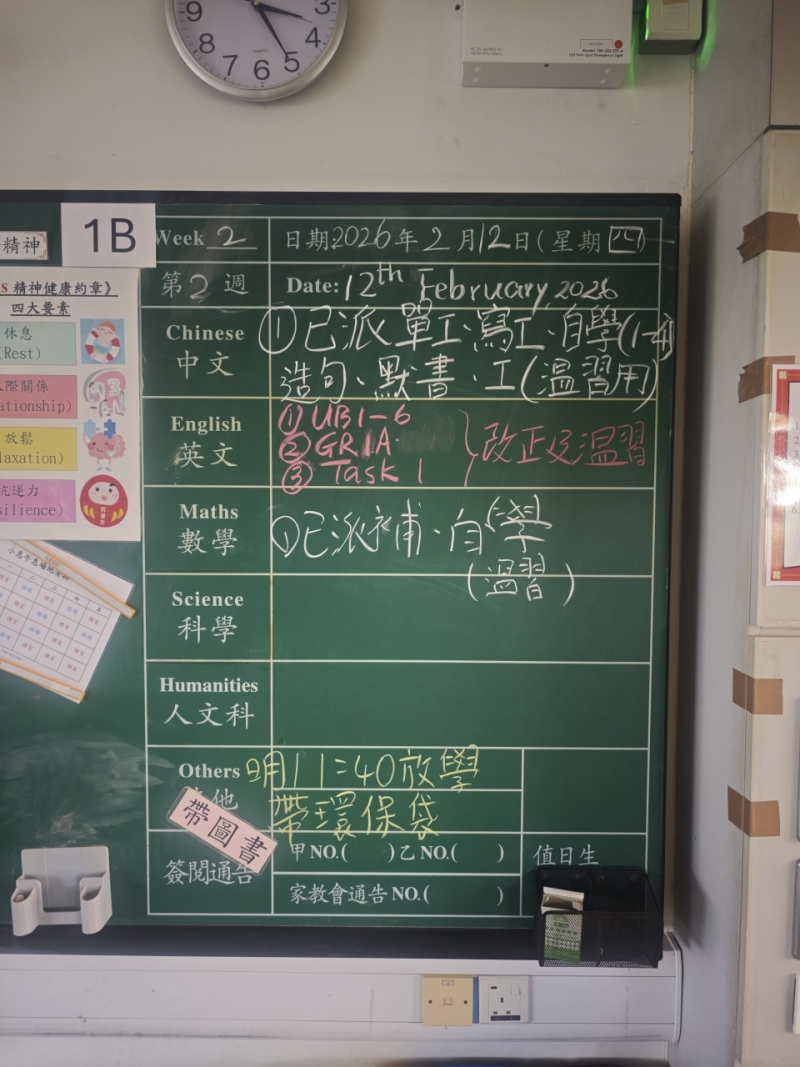 9
8
7
6
5
4
3
QUARTZ
精神
1B
Week 2
日期:2026年2月12日(星期四)
第2週
Date: 12th February, 2026
S 精神健康約章》
四大要素
休息
(Rest)
人際關係
ationship)
放鬆
laxation)
抗逆力
silience)
Chinese
中文
①已派單工、寫工、自學(1-4)
造句、默書、工(溫習用)
English
英文
① UB1-6
② GR1A
③ Task 1
改正及溫習
Maths
數學
①已派補、自學
(溫習)
Science
科學
Humanities
人文科
Others
明11:40放學
帶環保袋
帶圖書
簽閱通告
甲 NO.( )乙 NO.( )
家教會通告 NO.( )
值日生